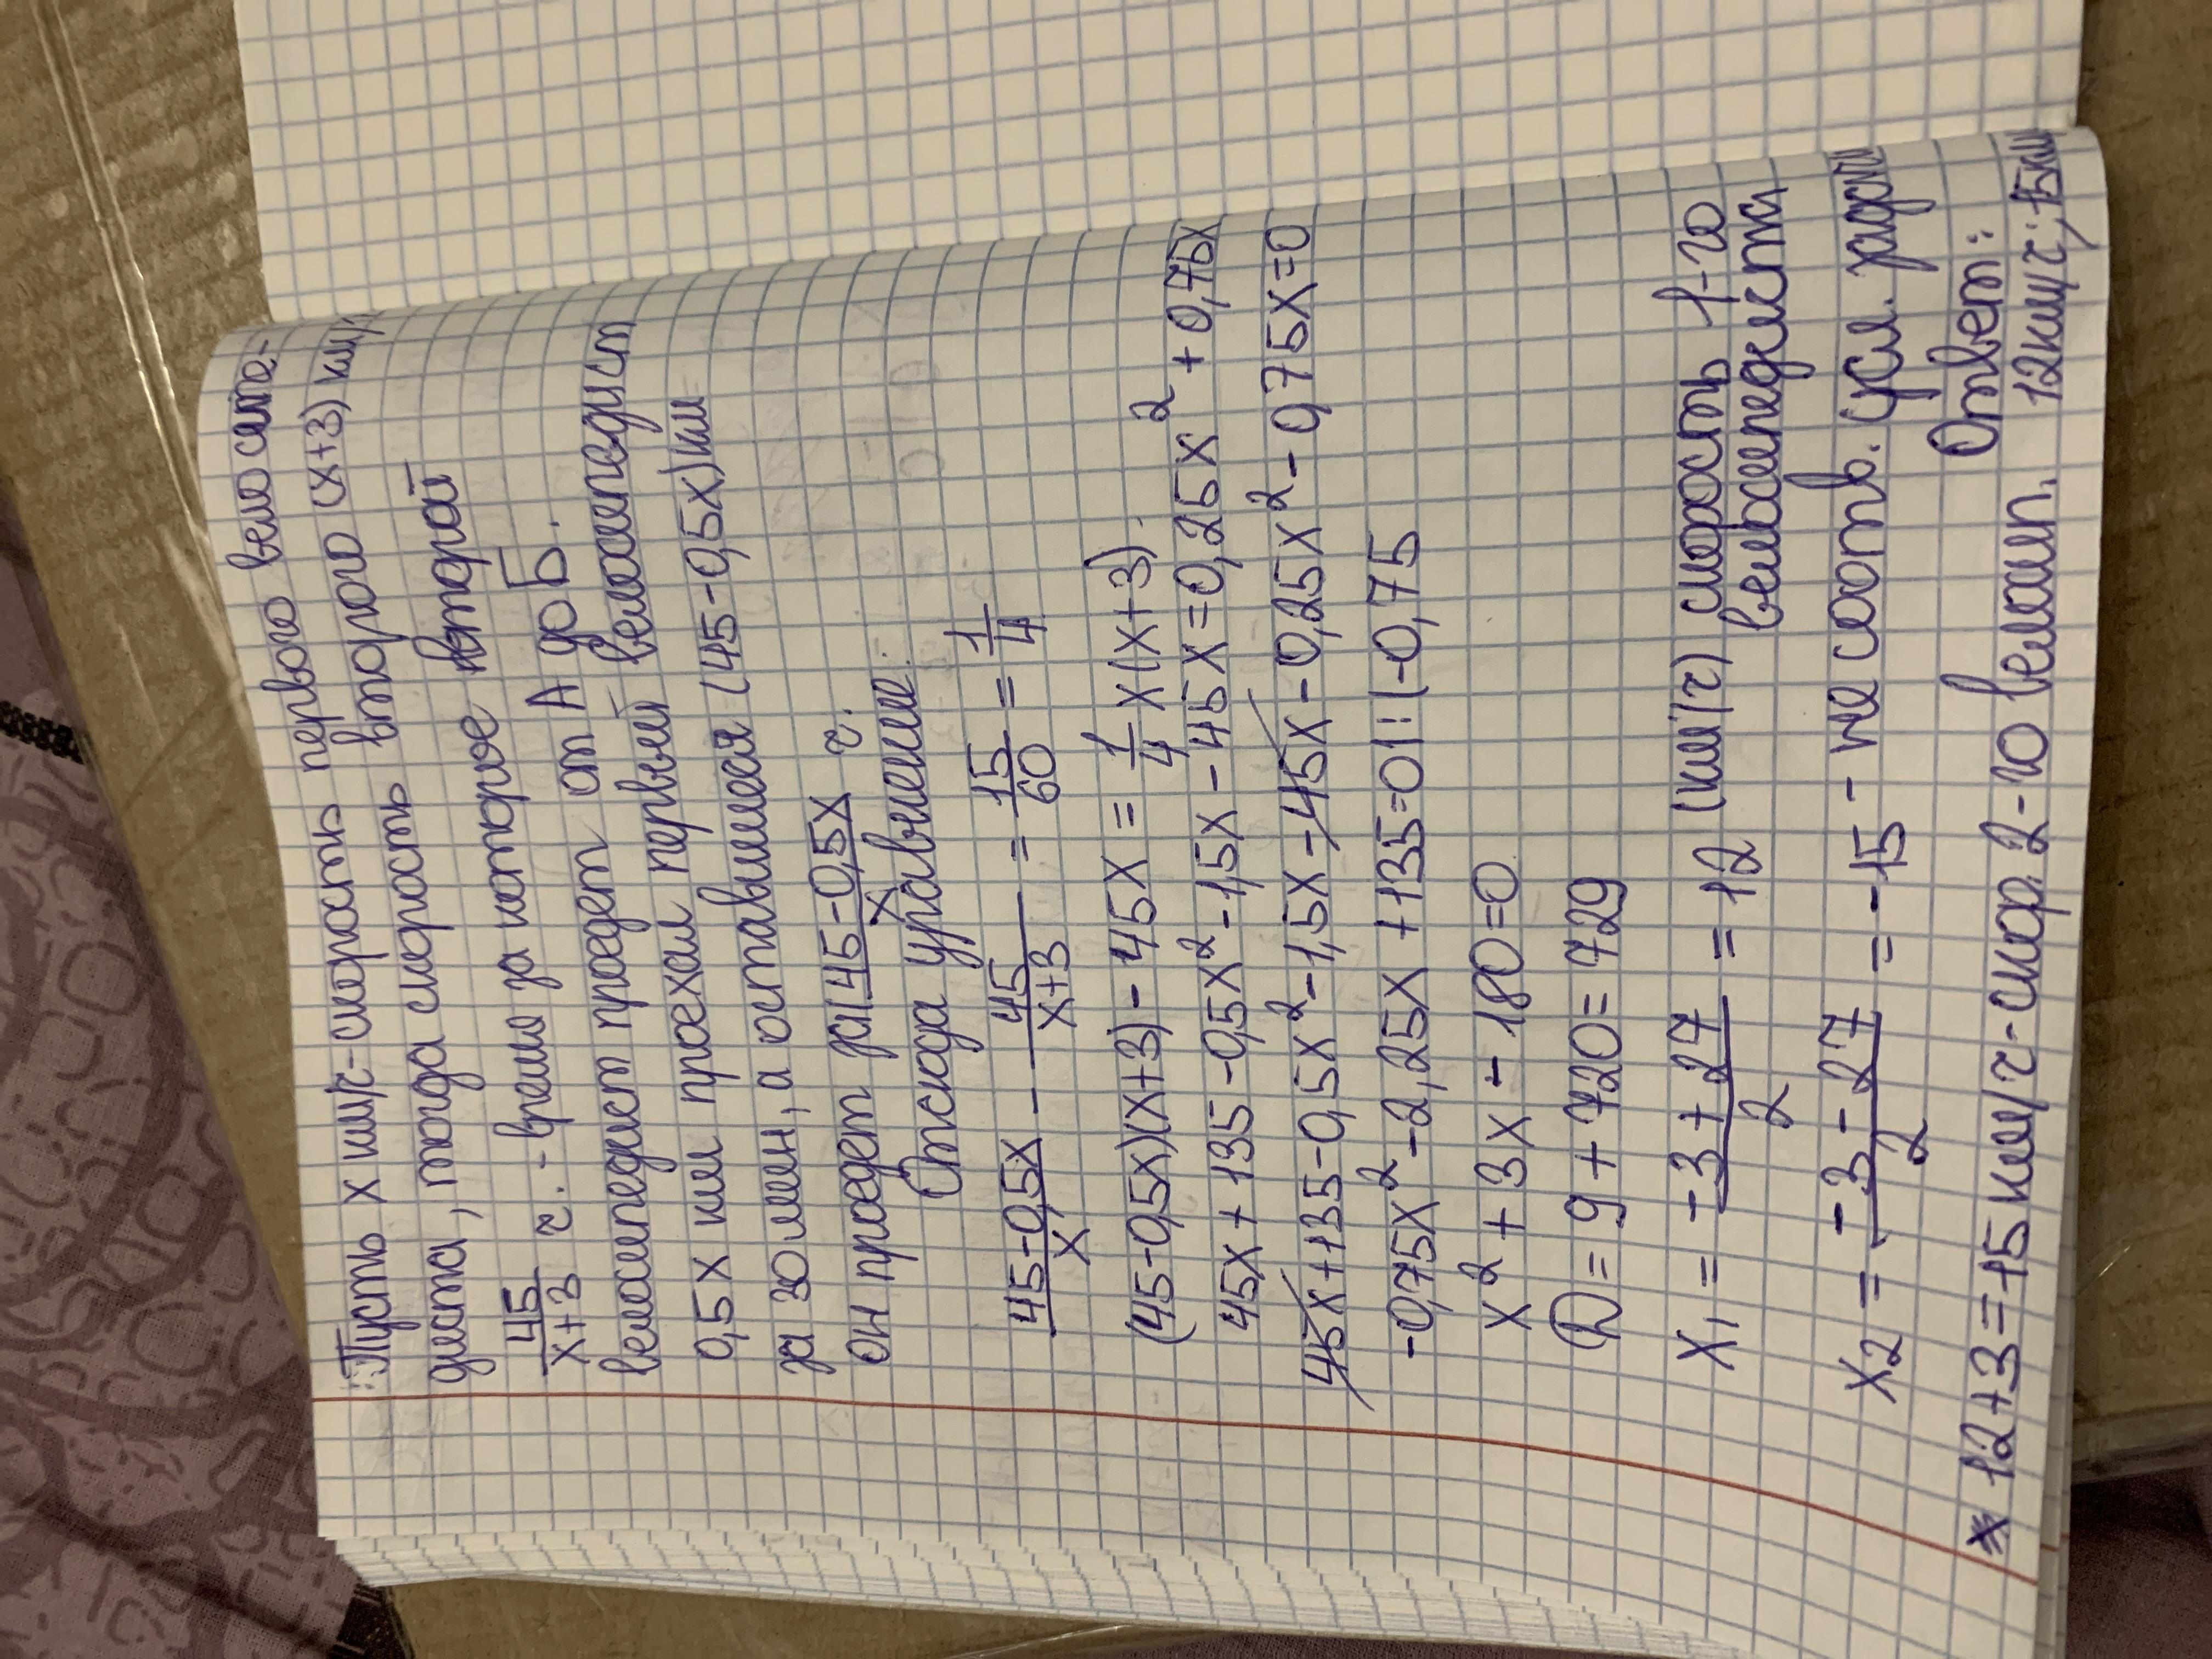 Пусть х км/ч - скорость первого велосипе-
диста, тогда скорость второго (х+3) км/
45/х+3 ч. - время за которое второй
велосипедист проедет от А до Б.
0,5х км проехал первый велосипедист
за 30 мин, а оставшиеся (45-0,5х) км
он проедет за 45-0,5х/х ч.
Отсюда уравнение:
45-0,5х/х - 45/х+3 = 15/60 = 1/4
(45-0,5х)(х+3) - 45х = 1/4 х(х+3)
45х+135-0,5х²-1,5х-45х=0,25х²+0,75х
45х+135-0,5х²-1,5х-45х-0,25х²-0,75х=0
-0,75х²-2,25х+135=0 | : (-0,75
х²+3х-180=0
D=9+720=729
х₁ = -3+27/2 = 12 (км/ч) скорость 1-го
велосипедиста
х₂ = -3-27/2 = -15 - не соотв. усл. задачи
12+3=15 км/ч - скор. 2-го велосип.
Ответ:
12 км/ч; 15км